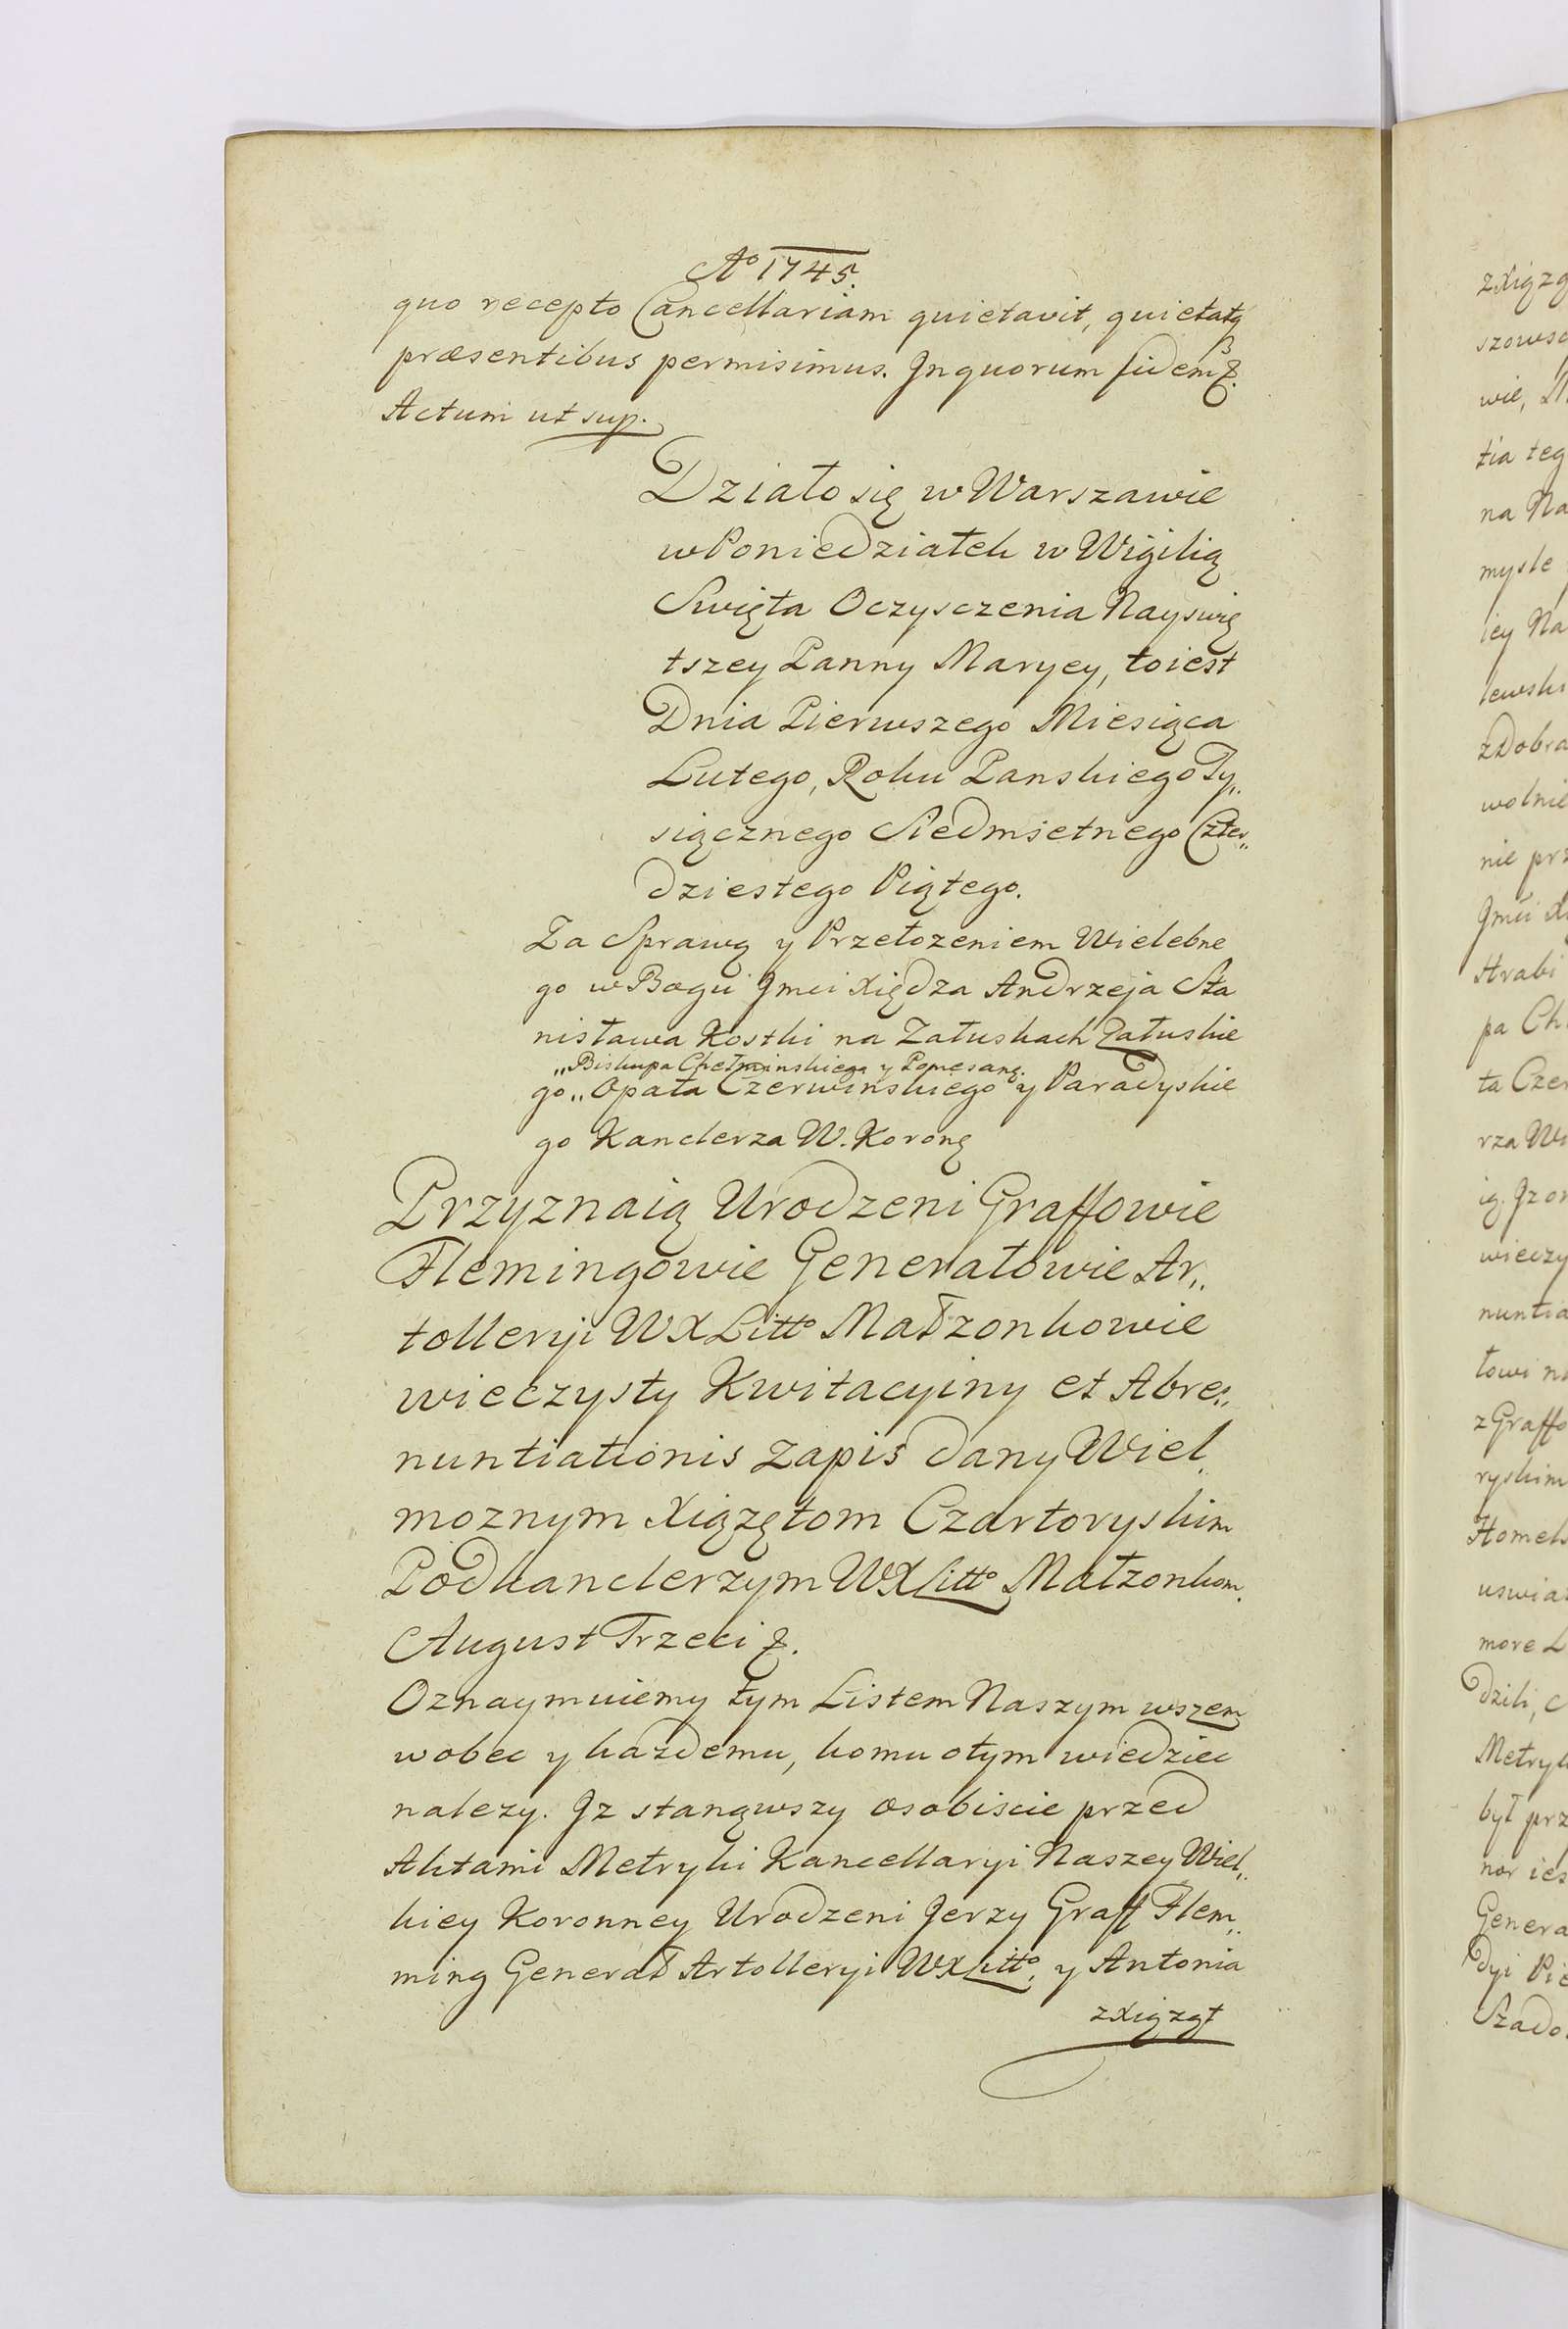 Aº 1745.
quo recepto Cancellariam quietavit, quietatq
præsentibus permisimus. Jnquorum fidem &.
Actum ut sup.
Działo się w Warszawie
w Poniedziałek w Wigilią
Swięta Oczysczenia Nayswię
tszey Panny Maryey, toiest
Dnia Pierwszego Miesiąca
Lutego, Roku Panskiego Ty„
siącznego Siedmsetnego Czter„
dziestego Piątego.
Za Sprawą y Przełozeniem Wielebne
go w Bogu Jmci Xiędza Andrzeja Sta
nisława Kostki na Załuskach Załuskie
„Biskupa Chełminskiego y Pomesanę.
go„ Opata Czerwinskiego y Paradyskie
go Kanclerza W. Koronę
Przyznaią Urodzeni Graffowie
Flemingowie Generałowie Ar„
tolleryi WXLittº Małzonkowie
wieczysty Kwitacyiny et Abre„
nuntiationis zapis dany Wiel„
moznym Xiązętom Czartoryskim
Podkanclerzym WXLittº Małzonkom.
August Trzeci &.
Oznaymuiemy tym Listem Naszym wszem
wobec y kazdemu, komu otym wiedziec
nalezy. Jz stanąwszy osobiscie przed
Aktami Metryki Kancellaryi Naszey Wiel„
kiey Koronney Urodzeni Jerzy Graff Flem„
ming Generał Artolleryi WXLittº, y Antonia
zXiąząt
zXiązą
wie,
tia teg
na Na
mysle
iey Na
lewski
zDobra
wolnie
nie prz
Jmci
Hrabi
pa Ch
ta Czer
rza Wi
wieczy
nuntia
z Graffo
ryskim
Homel
uswia
more L
dzili, c
Metryk
był prz
nor ies
Genera
dyi Pie
Szado